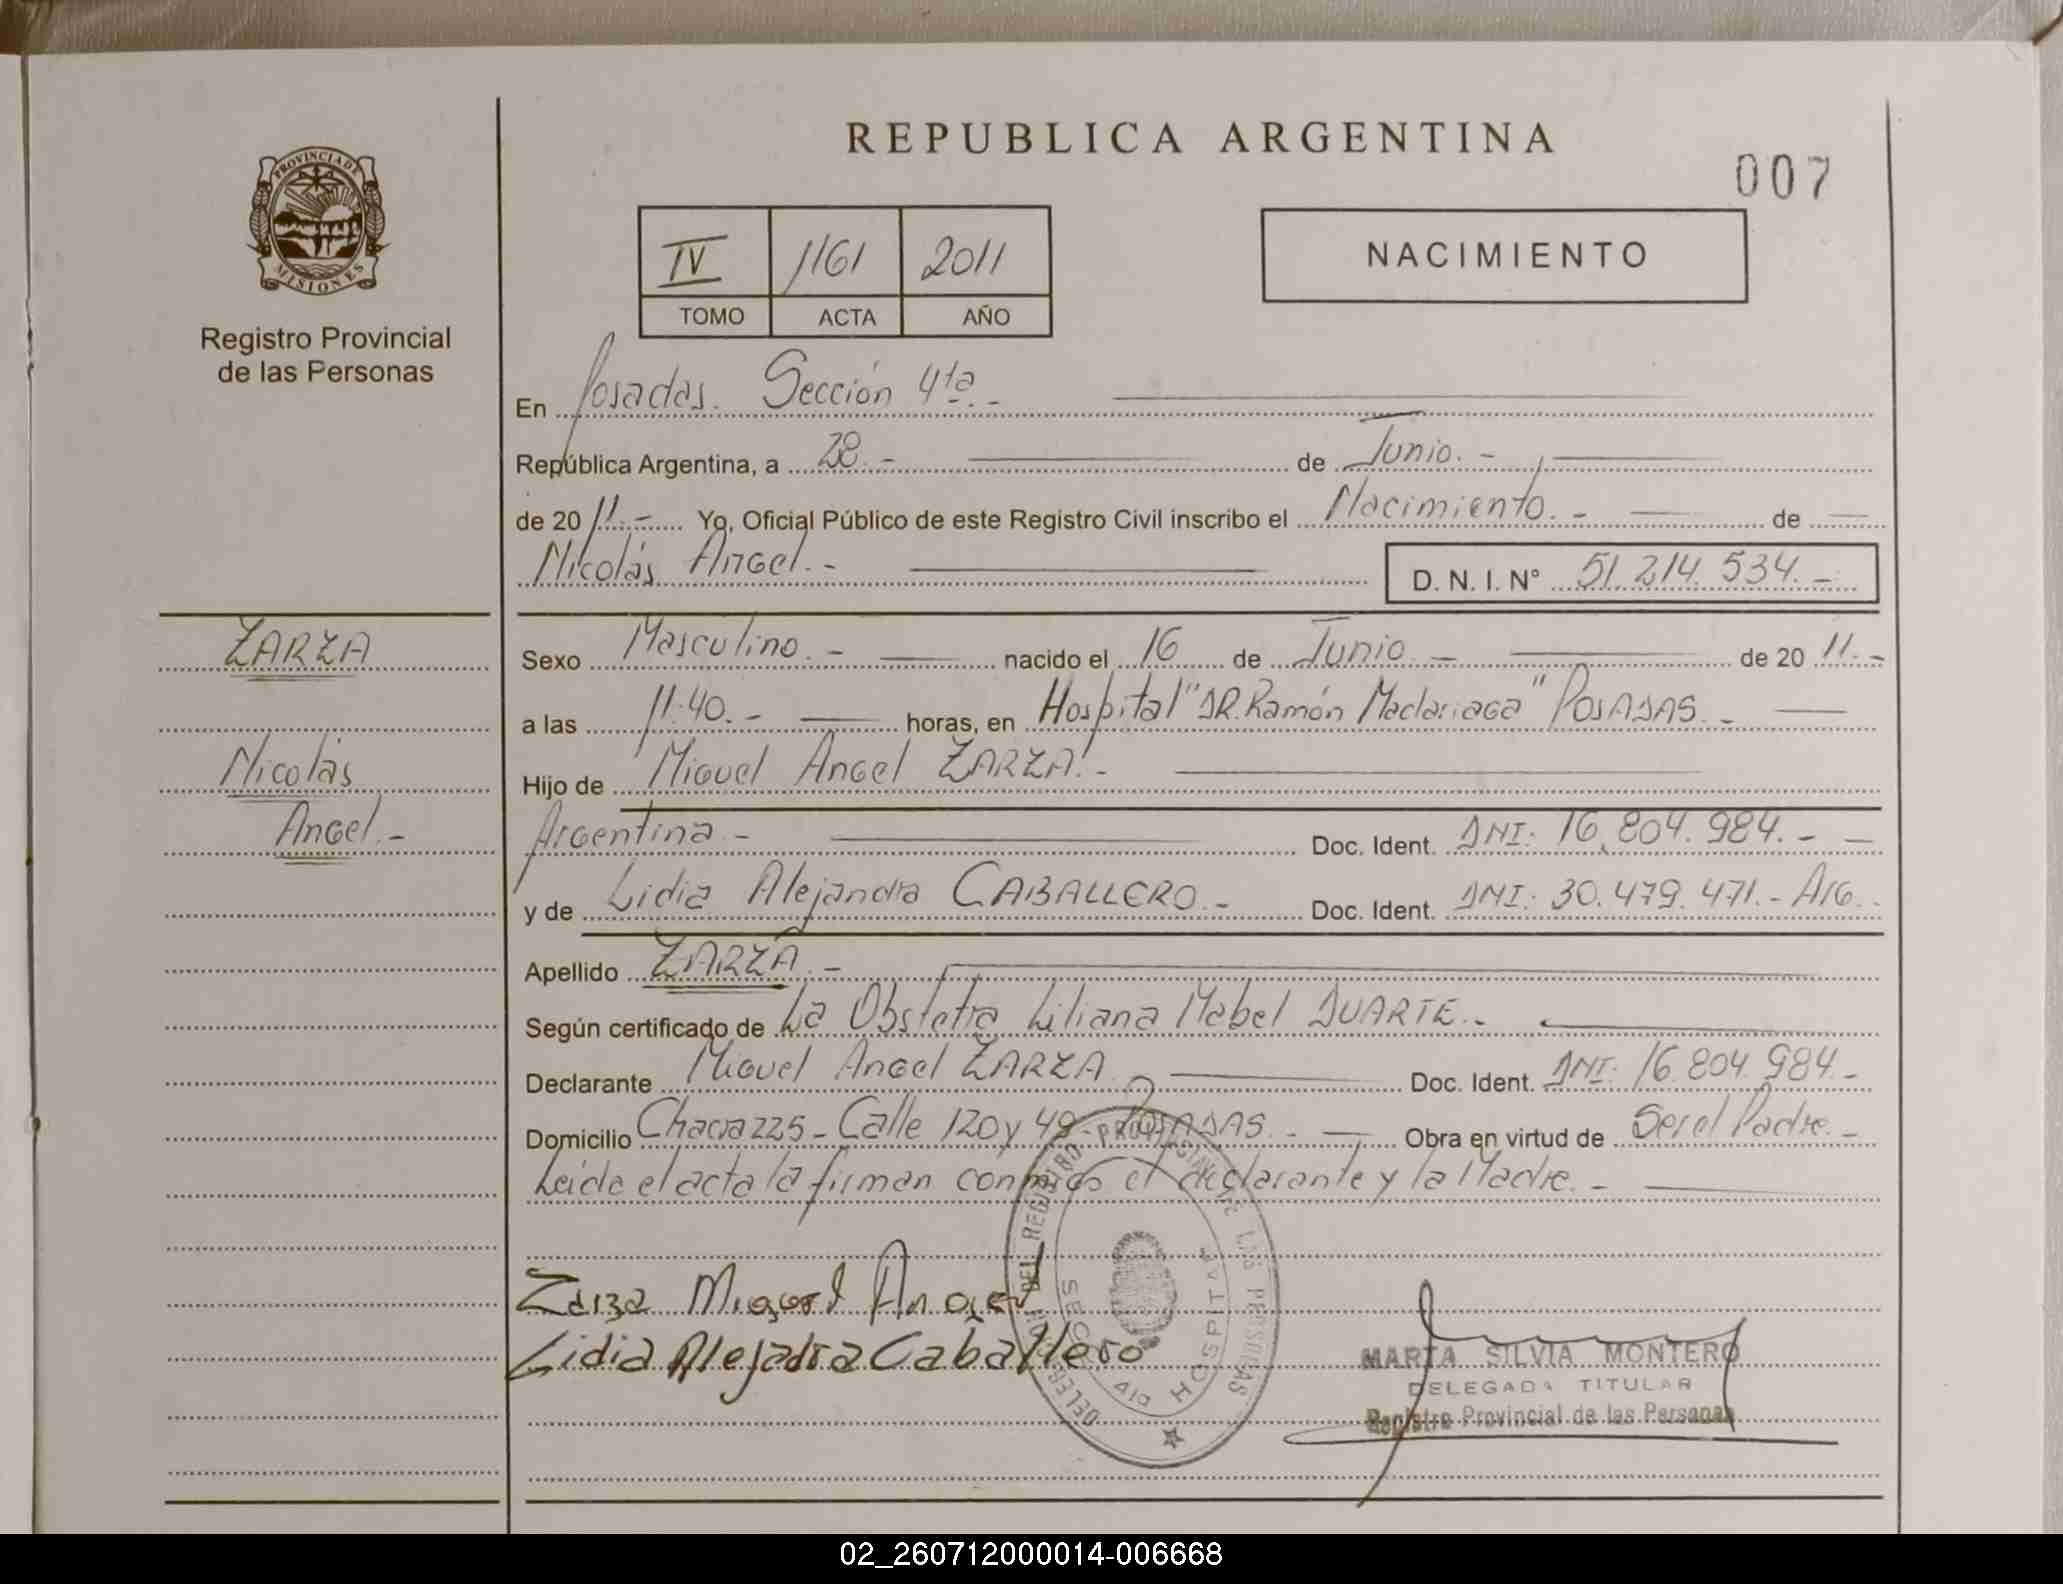 REPUBLICA ARGENTINA
007
PROVINCIA DE MISIONES
Registro Provincial
de las Personas
IV 1161 2011
TOMO ACTA AÑO
NACIMIENTO
En Posadas. Sección 4ta.-
República Argentina, a 28.- de Junio.-
de 2011.- Yo, Oficial Público de este Registro Civil inscribo el Nacimiento.- de
Nicolás Angel.- D. N. I. N° 51.214.534.-
ZARZA
Nicolás
Angel.-
Sexo Masculino.- nacido el 16 de Junio.- de 2011.-
a las 11:40.- horas, en Hospital "DR. Ramón Madariaga" POSADAS.-
Hijo de Miguel Angel ZARZA.-
Argentina.- Doc. Ident. DNI: 16.804.984.-
y de Lidia Alejandra CABALLERO.- Doc. Ident. DNI: 30.479.471.- Arg.
Apellido ZARZA.-
Según certificado de La Obstetra Liliana Mabel DUARTE.-
Declarante Miguel Angel ZARZA Doc. Ident. DNI: 16.804.984.-
Domicilio Chacra 225- Calle 120 y 49- POSADAS.- Obra en virtud de Ser el Padre.-
Leida el acta la firman conmigo el declarante y la Madre.-
Zarza Miguel Angel
Lidia Alejadra Caballero
DELEGACION DEL REGISTRO PROVINCIAL DE LAS PERSONAS
SECCION 4ta HOSPITAL
MARTA SILVIA MONTERO
DELEGADA TITULAR
Registro Provincial de las Personas
02_260712000014-006668